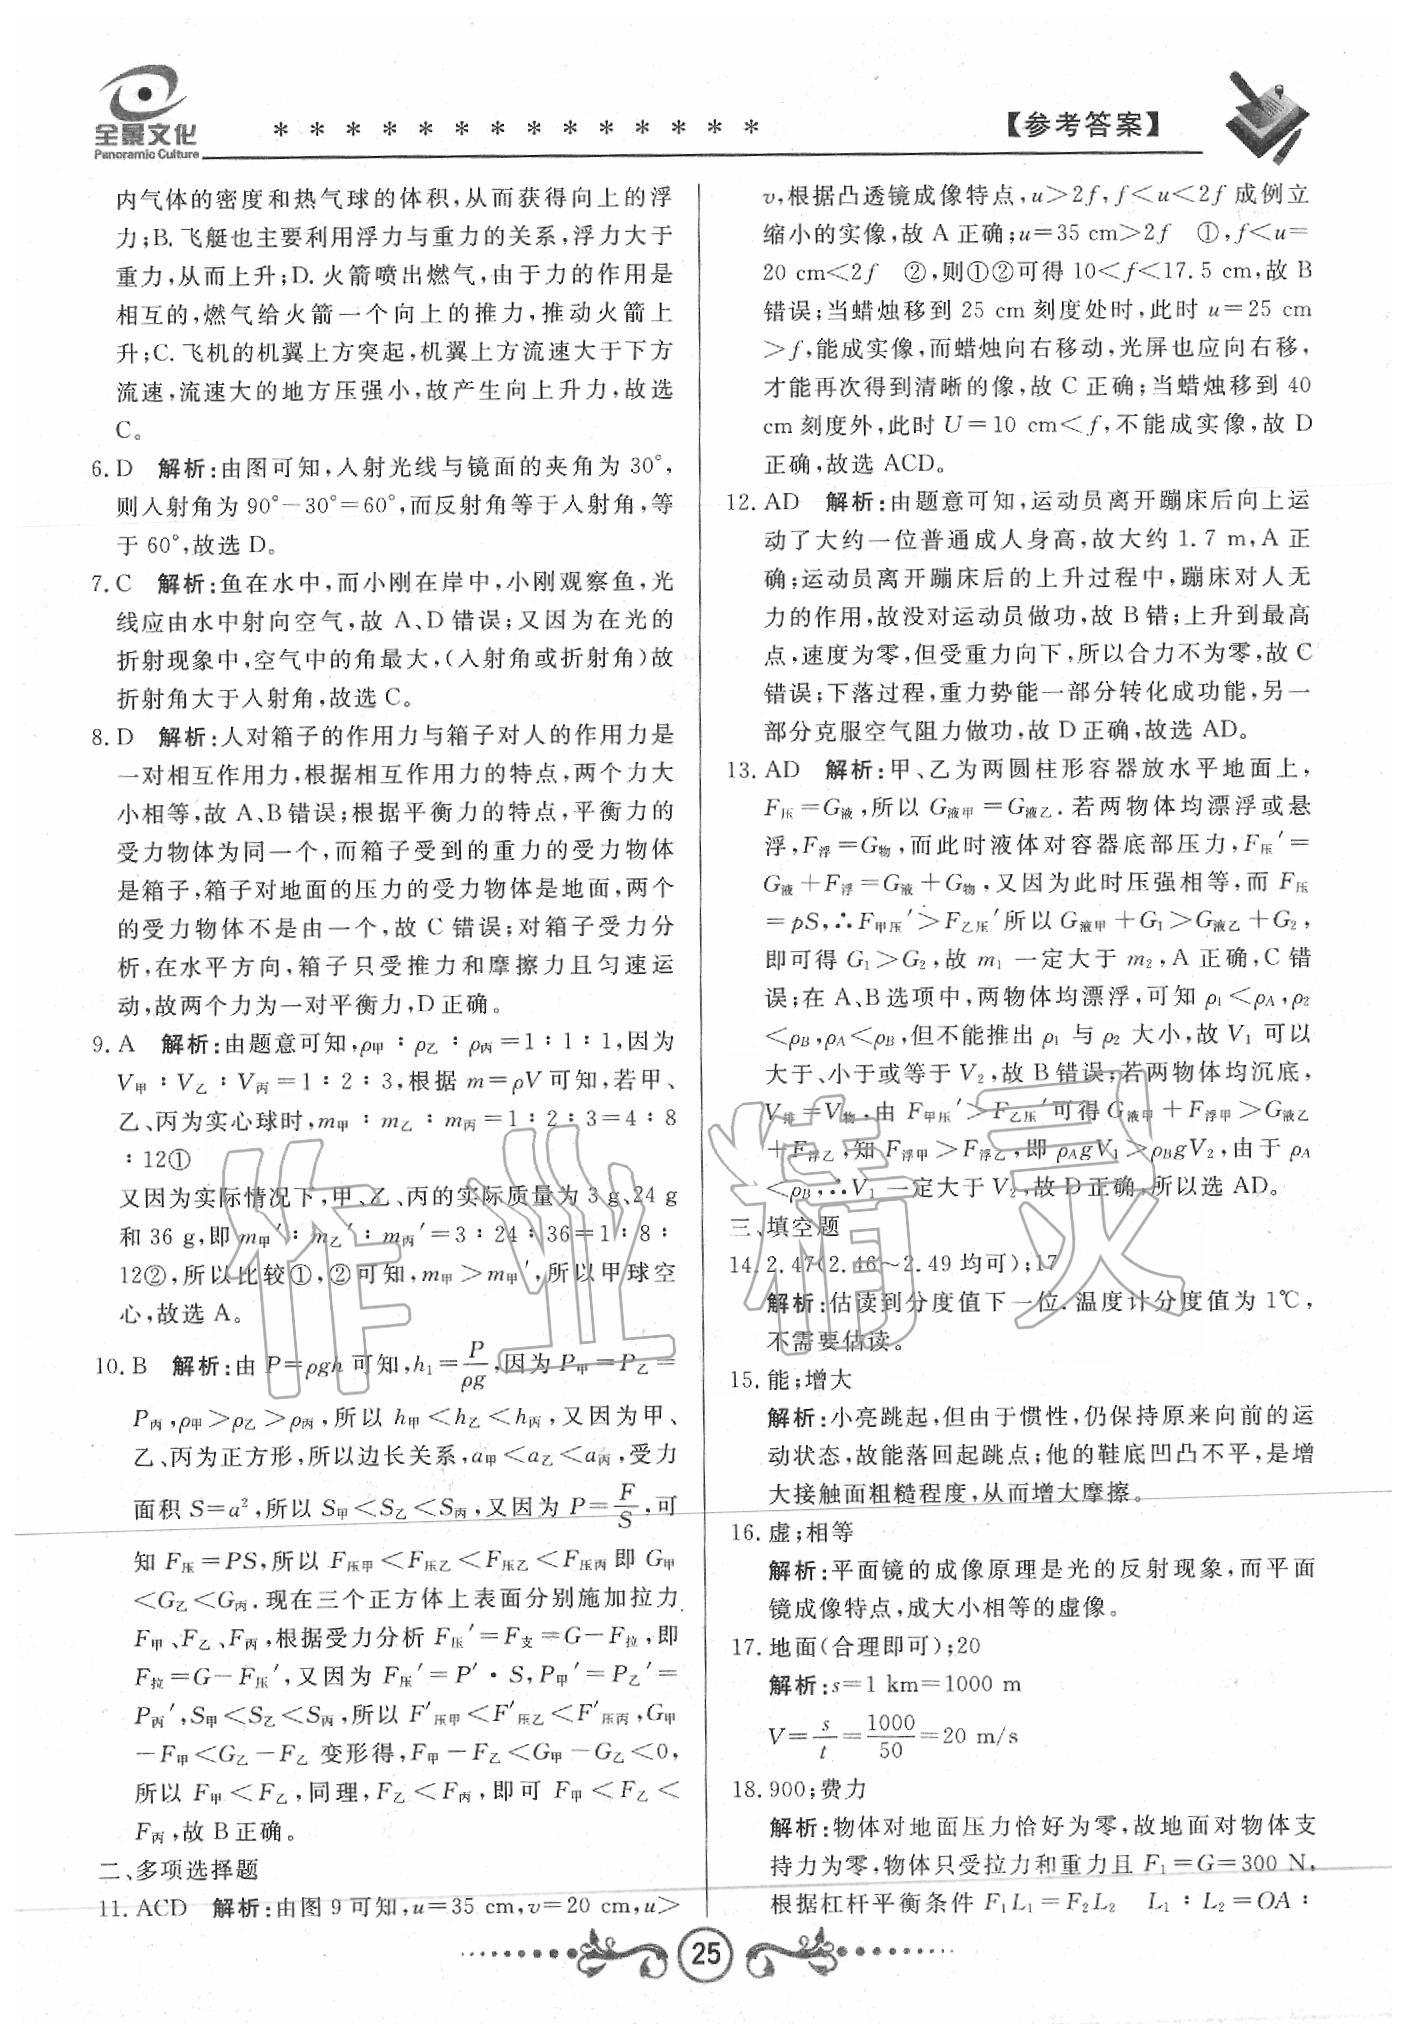 全景文化
Panoramic Culture
* * * * * * * * * * * * * *
【参考答案】
内气体的密度和热气球的体积,从而获得向上的浮
力;B.飞艇也主要利用浮力与重力的关系,浮力大于
重力,从而上升;D.火箭喷出燃气,由于力的作用是
相互的,燃气给火箭一个向上的推力,推动火箭上
升;C.飞机的机翼上方突起,机翼上方流速大于下方
流速,流速大的地方压强小,故产生向上升力,故选
C。
6.D 解析:由图可知,入射光线与镜面的夹角为 30°,
则入射角为 90°−30°=60°,而反射角等于入射角,等
于 60°,故选 D。
7.C 解析:鱼在水中,而小刚在岸中,小刚观察鱼,光
线应由水中射向空气,故 A、D 错误;又因为在光的
折射现象中,空气中的角最大,(入射角或折射角)故
折射角大于入射角,故选 C。
8.D 解析:人对箱子的作用力与箱子对人的作用力是
一对相互作用力,根据相互作用力的特点,两个力大
小相等,故 A、B错误;根据平衡力的特点,平衡力的
受力物体为同一个,而箱子受到的重力的受力物体
是箱子,箱子对地面的压力的受力物体是地面,两个
的受力物体不是由一个,故 C 错误;对箱子受力分
析,在水平方向,箱子只受推力和摩擦力且匀速运
动,故两个力为一对平衡力,D正确。
9.A 解析:由题意可知,ρ甲∶ρ乙∶ρ丙=1∶1∶1,因为
V甲∶V乙∶V丙=1∶2∶3,根据 m=ρV 可知,若甲、
乙、丙为实心球时,m甲∶m乙∶m丙=1∶2∶3=4∶8
∶12①
又因为实际情况下,甲、乙、丙的实际质量为 3 g、24 g
和 36 g,即 m甲′∶m乙′∶m丙′=3∶24∶36=1∶8∶
12②,所以比较①,②可知,m甲>m甲′,所以甲球空
心,故选 A。
10.B 解析:由 P=ρgh 可知,h₁=P/ρg,因为 P甲=P乙=
P丙,ρ甲>ρ乙>ρ丙,所以 h甲<h乙<h丙,又因为甲、
乙、丙为正方形,所以边长关系,a甲<a乙<a丙,受力
面积 S=a²,所以 S甲<S乙<S丙,又因为 P=F/S,可
知 F压=PS,所以 F压甲<F压乙<F压乙<F压丙即 G甲
<G乙<G丙.现在三个正方体上表面分别施加拉力
F甲、F乙、F丙,根据受力分析 F压′=F支=G−F拉,即
F拉=G−F压′,又因为 F压′=P′·S,P甲′=P乙′=
P丙′,S甲<S乙<S丙,所以 F′压甲<F′压乙<F′压丙,G甲
−F甲<G乙−F乙 变形得,F甲−F乙<G甲−G乙<0,
所以 F甲<F乙,同理,F乙<F丙,即可 F甲<F乙<
F丙,故 B正确。
二、多项选择题
11.ACD 解析:由图 9 可知,u=35 cm,v=20 cm,u>
v,根据凸透镜成像特点,u>2f,f<u<2f 成例立
缩小的实像,故 A 正确;u=35 cm>2f ①,f<u=
20 cm<2f ②,则①②可得 10<f<17.5 cm,故 B
错误;当蜡烛移到 25 cm 刻度处时,此时 u=25 cm
>f,能成实像,而蜡烛向右移动,光屏也应向右移,
才能再次得到清晰的像,故 C 正确;当蜡烛移到 40
cm 刻度外,此时 U=10 cm<f,不能成实像,故 D
正确,故选 ACD。
12.AD 解析:由题意可知,运动员离开蹦床后向上运
动了大约一位普通成人身高,故大约 1.7 m,A 正
确;运动员离开蹦床后的上升过程中,蹦床对人无
力的作用,故没对运动员做功,故 B 错;上升到最高
点,速度为零,但受重力向下,所以合力不为零,故 C
错误;下落过程,重力势能一部分转化成功能,另一
部分克服空气阻力做功,故 D 正确,故选 AD。
13.AD 解析:甲、乙为两圆柱形容器放水平地面上,
F压=G液,所以 G液甲=G液乙.若两物体均漂浮或悬
浮,F浮=G物,而此时液体对容器底部压力,F压′=
G液+F浮=G液+G物,又因为此时压强相等,而 F压
=pS,∴F甲压′>F乙压′所以 G液甲+G₁>G液乙+G₂,
即可得 G₁>G₂,故 m₁ 一定大于 m₂,A 正确,C 错
误;在 A、B选项中,两物体均漂浮,可知 ρ₁<ρA,ρ₂
<ρB,ρA<ρB,但不能推出 ρ₁ 与 ρ₂ 大小,故 V₁ 可以
大于、小于或等于 V₂,故 B 错误;若两物体均沉底,
V排=V物.由 F甲压′>F乙压′可得 G液甲+F浮甲>G液乙
+F浮乙,知 F浮甲>F浮乙,即 ρAgV₁>ρBgV₂,由于 ρA
<ρB,∴V₁ 一定大于 V₂,故 D 正确,所以选 AD。
三、填空题
14.2.47(2.46~2.49 均可);17
解析:估读到分度值下一位.温度计分度值为 1℃,
不需要估读。
15.能;增大
解析:小亮跳起,但由于惯性,仍保持原来向前的运
动状态,故能落回起跳点;他的鞋底凹凸不平,是增
大接触面粗糙程度,从而增大摩擦。
16.虚;相等
解析:平面镜的成像原理是光的反射现象,而平面
镜成像特点,成大小相等的虚像。
17.地面(合理即可);20
解析:s=1 km=1000 m
V=s/t=1000/50=20 m/s
18.900;费力
解析:物体对地面压力恰好为零,故地面对物体支
持力为零,物体只受拉力和重力且 F₁=G=300 N,
根据杠杆平衡条件 F₁L₁=F₂L₂ L₁∶L₂=OA∶
25
作业精灵